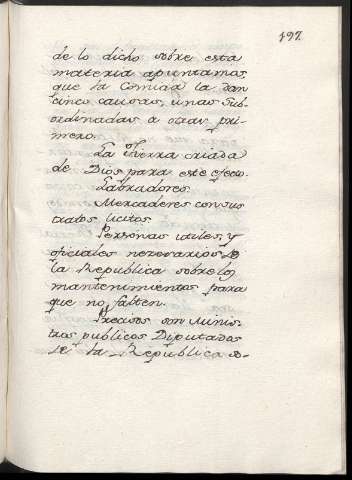 197.
de lo dicho sobre esta
materia apuntamos,
que la Comida la dan
cinco causas, unas Sub-
ordinadas a otras pri-
mero.
La Tierra criada
de Dios para este efecto.
Labradores.
Mercaderes con sus
tratos licitos
Personas utiles, y
oficiales necesarios de
la Republica sobre los
mantenimientos para
que no falten.
Precisos son Minis-
tros publicos Diputados
de la Republica so-